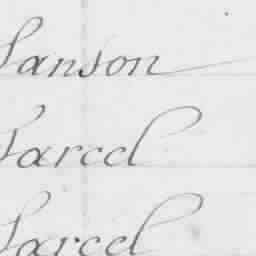 Sanson
Sarcel
Sarcel